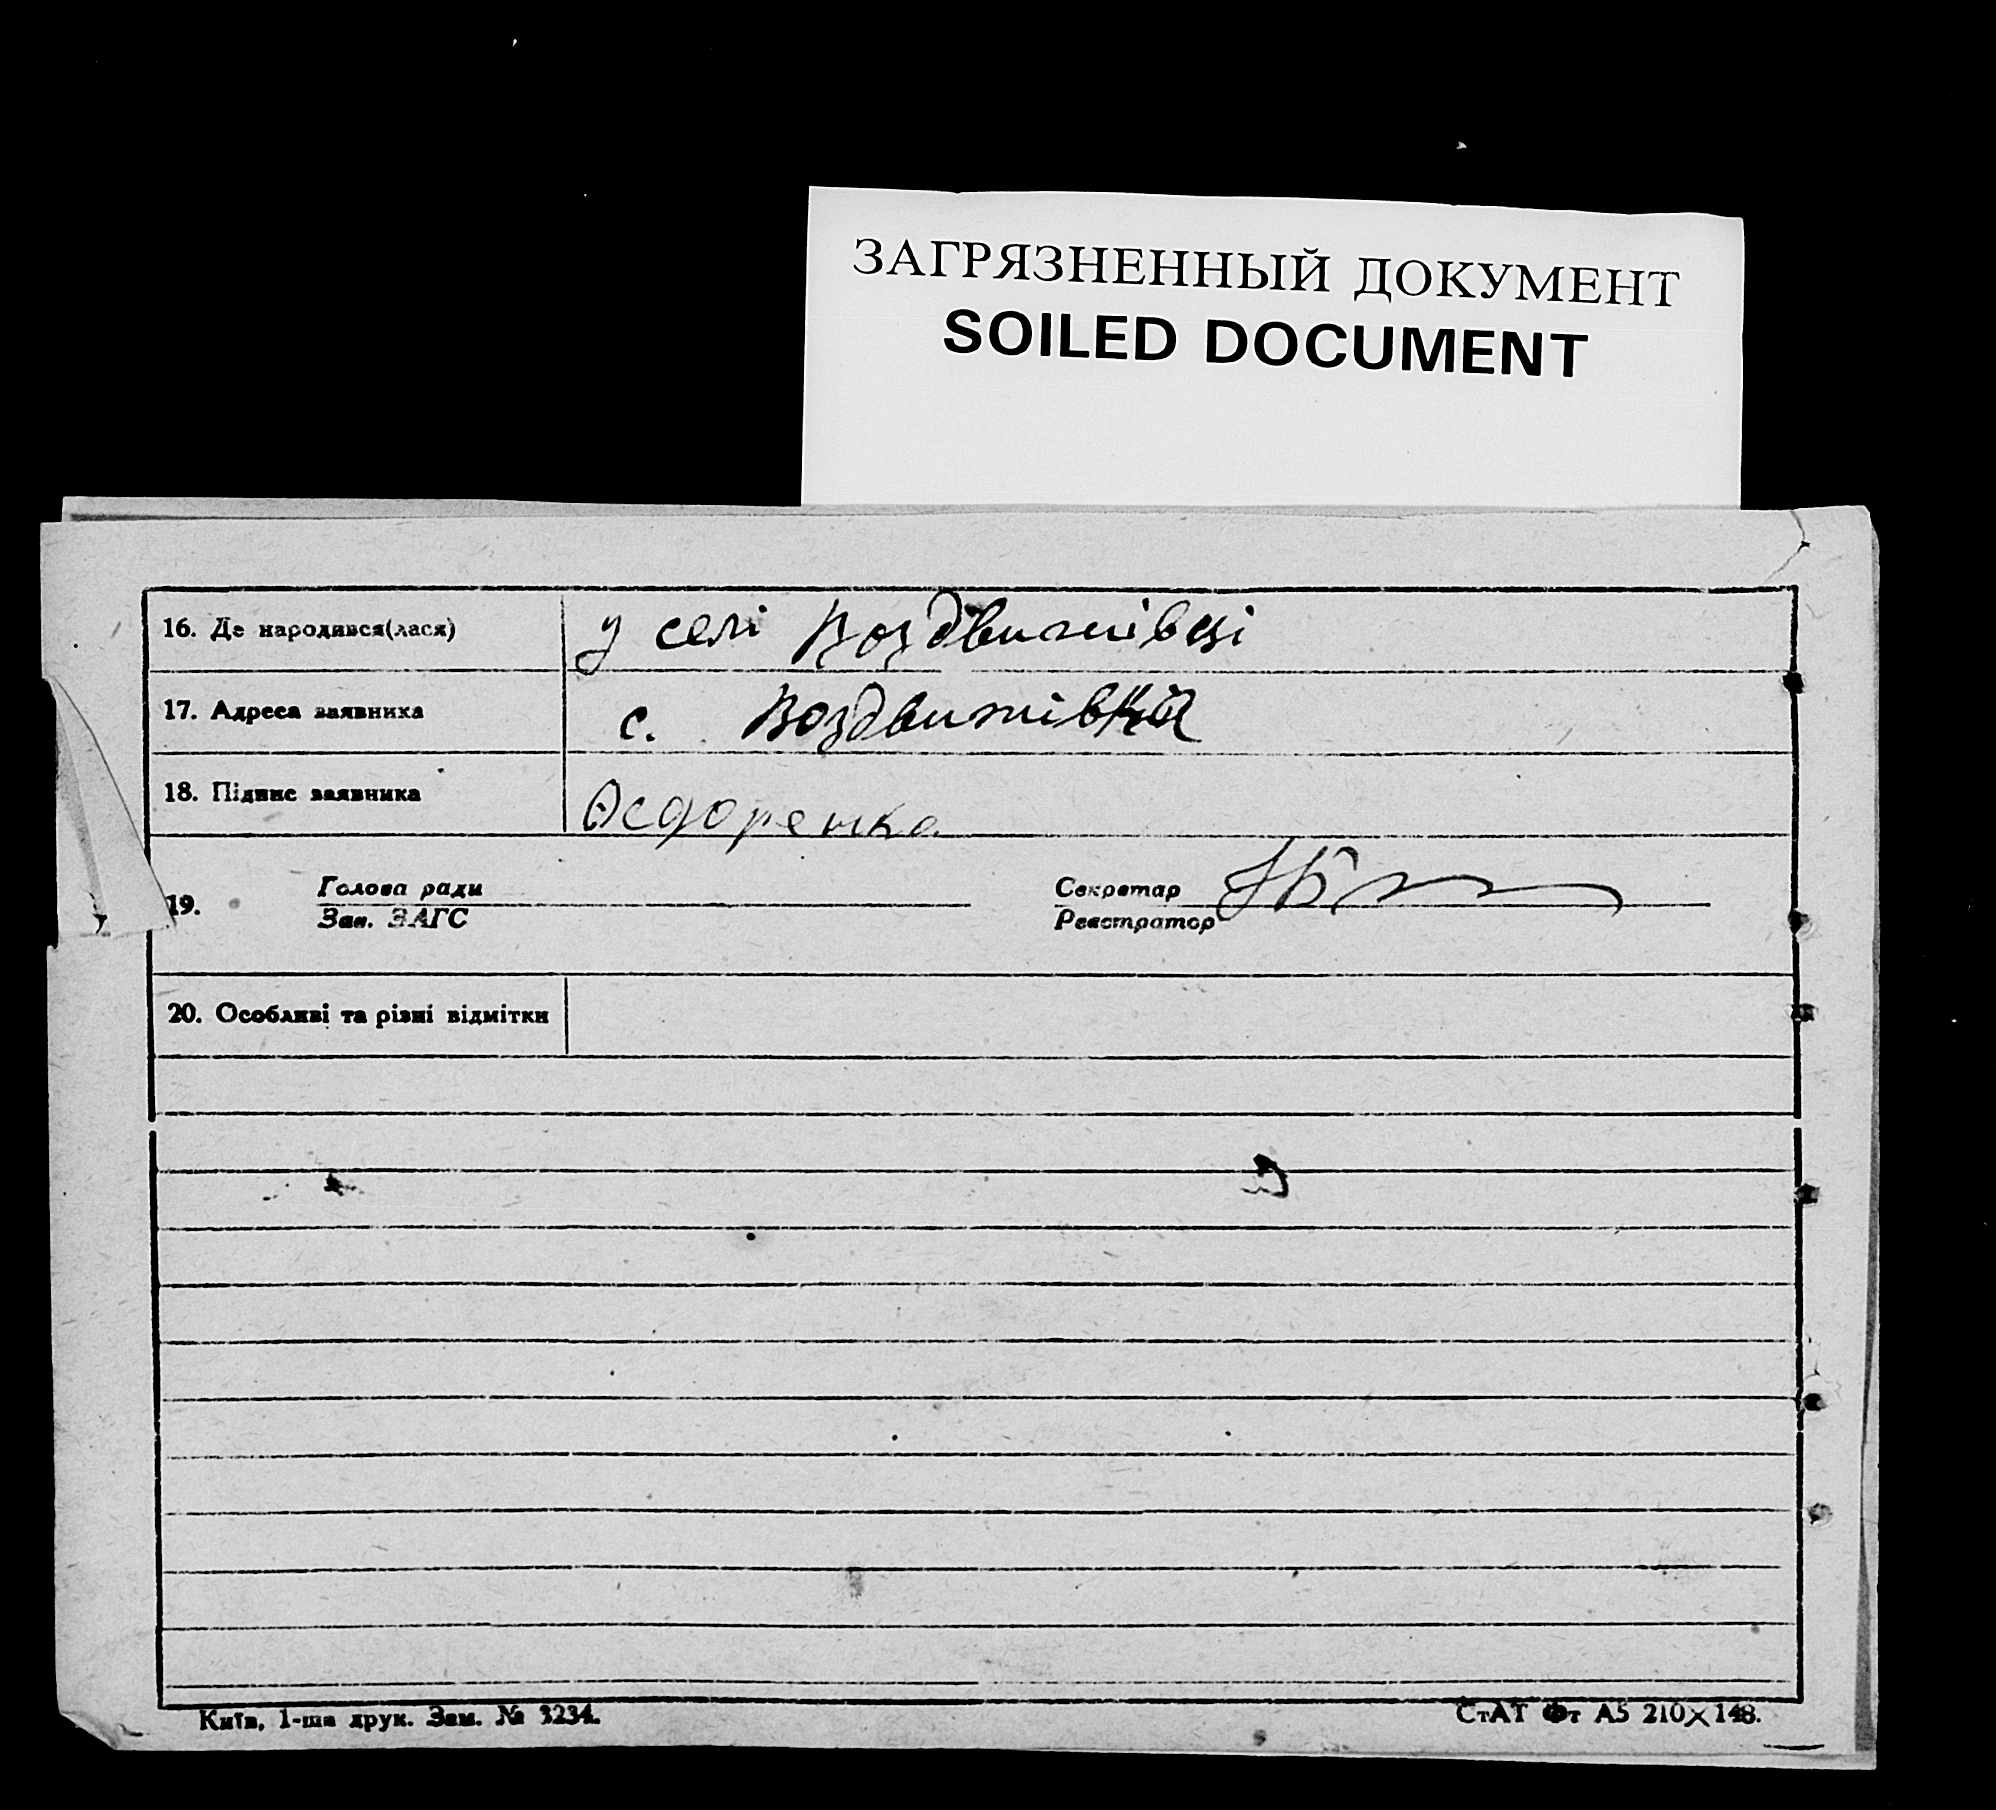 ЗАГРЯЗНЕННЫЙ ДОКУМЕНТ
SOILED DOCUMENT
16. Де народився(лася) у селі Воздвижівці
17. Адреса заявника с. Воздвижівка
18. Підпис заявника Федоренко
19. Голова ради Секретар
Зав. ЗАГС Реєстратор
20. Особливі та різні відмітки
Київ, 1-ша друк. Зам. № 3234. СтАТ Фт А5 210×148.